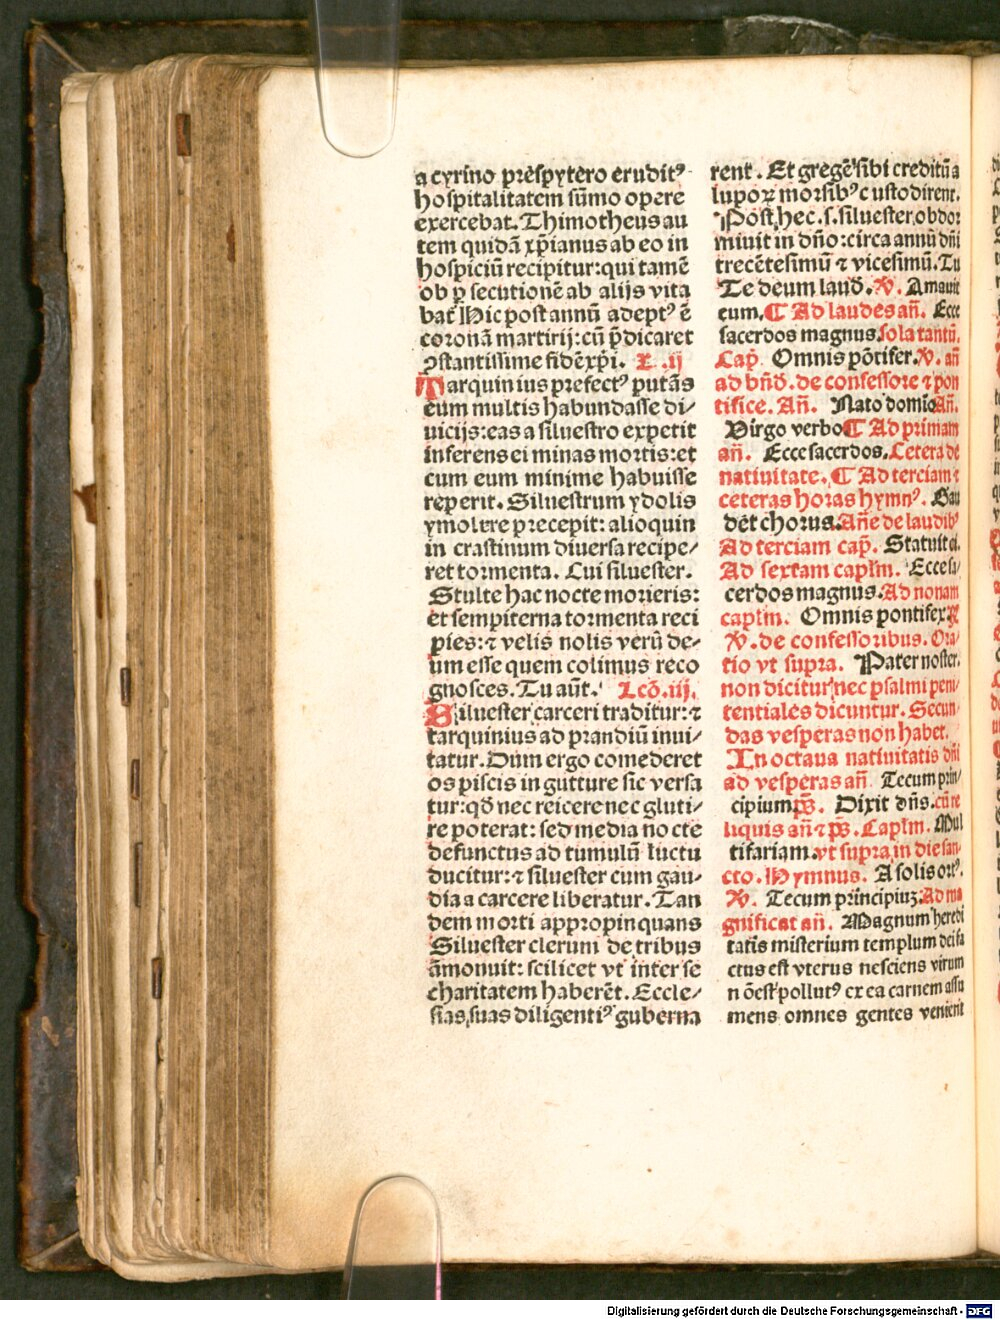 a cyrino prespytero erudit⁹
hospitalitatem sūmo opere
exercebat. Thimotheus au
tem quidā xp̄ianus ab eo in
hospiciū recipitur: qui tamē
ob ꝑsecutionē ab alijs vita
bat̄ Hic post annū adept⁹ ē
coronā martirij: cū p̄dicaret
ꝯstantissime fidē xp̄i. L .ij
Tarquinius prefect⁹ putās
eum multis habundasse di/
uicijs: eas a siluestro expetit
inferens ei minas mortis: et
cum eum minime habuisse
reperit. Siluestrum ydolis
ymolere precepit: alioquin
in crastinum diuersa recipe/
ret tormenta. Cui siluester.
Stulte hac nocte morieris:
et sempiterna tormenta reci
pies: ⁊ velis nolis verū de/
um esse quem colimus reco
gnosces. Tu aūt. Lcō. iij.
Siluester carceri traditur: ⁊
tarquinius ad prandiū inui/
tatur. Dum ergo comederet
os piscis in gutture sic versa
tur: qd̄ nec reicere nec gluti/
re poterat: sed media nocte
defunctus ad tumulū luctu
ducitur: ⁊ siluester cum gau/
dia a carcere liberatur. Tan
dem morti appropinquans
Siluester clerum de tribus
āmonuit: scilicet vt inter se
charitatem haberēt. Eccle/
sias suas diligenti⁹ guberna
rent. Et gregē sibi creditū a
lupoꝝ morsib⁹ custodirent.
Post hec .s. siluester obdor
miuit in dn̄o: circa annū dn̄i
trecētesimū ⁊ vicesimū. Tu
Te deum laud̄. ℣. Amauit
eum. ¶ Ad laudes añ. Ecce
sacerdos magnus. sola tantū.
Cap̄. Omnis pōtifex. ℣. añ
ad bn̄d̄. de confessore ⁊ pon
tifice. Añ. Nato domīo Añ.
Virgo verbo ¶ Ad primam
añ. Ecce sacerdos. Cetera de
natiuitate. ¶ Ad terciam ⁊
ceteras horas hymn⁹. Gau
det chorus. Añe de laudib⁹
Ad terciam cap̄. Statuit ei.
Ad sextam caplm̄. Ecce sa/
cerdos magnus. Ad nonam
caplm̄. Omnis pontifex ℟
℣. de confessoribus. Ora/
tio vt supra. Pater noster.
non dicitur, nec psalmi peni/
tentiales dicuntur. Secun/
das vesperas non habet.
In octaua natiuitatis dn̄i
ad vesperas añ Tecum prin/
cipium ps̄. Dixit dn̄s. cū re
liquis añ ⁊ ps̄. Caplm̄. Mul
tifariam. vt supra in die san/
cto. Hymnus. A solis ort⁹.
℣. Tecum principiuꝫ. Ad ma
gnificat añ. Magnum heredi
tatis misterium templum dei fa
ctus est vterus nesciens virum
n ōest pollut⁹ ex ea carnem assu
mens omnes gentes venient
Digitalisierung gefördert durch die Deutsche Forschungsgemeinschaft - DFG